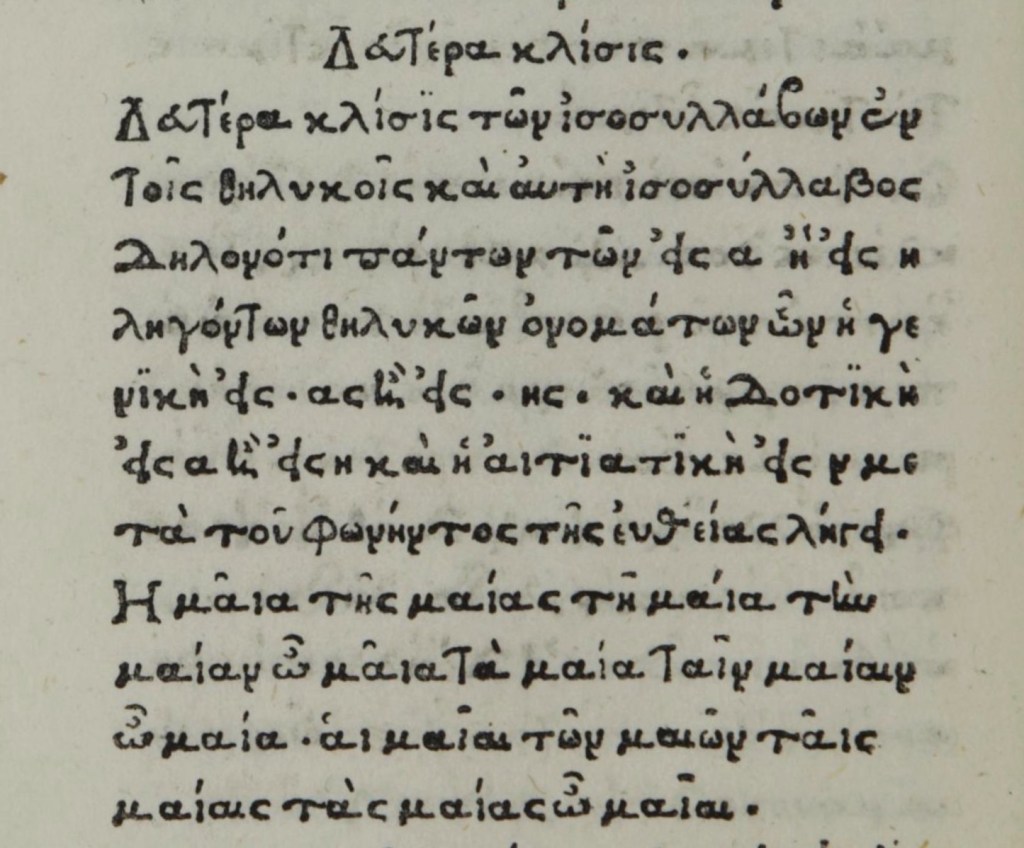 Δευτέρα κλίσις.
Δευτέρα κλίσϊς τῶν ἰσοσυλλάβων ἐν
τοῖς θηλυκοῖς καὶ ἀυτὴ ἰσοσύλλαβος
Δηλονότι πάντων τῶν ἐις α ἢ ἐις η
ληγόντων θηλυκῶν ὀνομάτων ὧν ἡ γε
νϊκὴ ἐις . ας κὴ ἐις . ης . καὶ ἡ Δοτϊκὴ
ἐις α κὴ ἐις η καὶ ἡ ἀιτϊατϊκὴ ἐις ν με
τὰ τοῦ φωνήντος τῆς ἐυθείας λήγει.
Η μᾶια τῆς μαίας τῆ μαία τὴν
μαίαν ὦ μᾶια Τὰ μαία ταῖν μαίαιν
ὦ μαία . ἁι μαῖαι τῶν μαιῶν τᾶις
μαίαις τὰς μαίας ὦ μαῖαι .